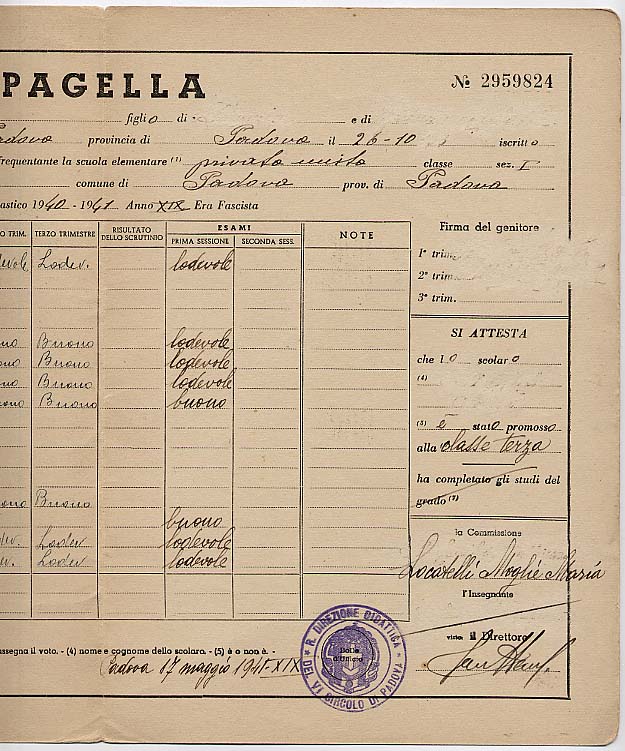 PAGELLA
№ 2959824
figlio di e di
Padova provincia di Padova il 26-10 iscritto
frequentante la scuola elementare (1) privata mista classe sez. I
comune di Padova prov. di Padova
astico 1940 - 1941 Anno XIX Era Fascista
O TRIM. TERZO TRIMESTRE RISULTATO DELLO SCRUTINIO ESAMI NOTE
PRIMA SESSIONE SECONDA SESS.
devole Lodev. lodevole
ono Buono lodevole
ono Buono lodevole
ono Buono lodevole
ono Buono buono
ono Buono
buono
dev. Lodev lodevole
v. Lodev lodevole
Firma del genitore
1° trim.
2° trim.
3° trim.
SI ATTESTA
che lo scolaro
(4)
(5) è stato promosso
alla classe terza
ha completato gli studi del
grado (2)
la Commissione
Locatelli Moglie Maria
l'Insegnante
visto: il Direttore
assegna il voto. - (4) nome e cognome dello scolaro. - (5) è o non è. -
Padova 17 maggio 1941-XIX
R. DIREZIONE DIDATTICA
DEL VI CIRCOLO DI PADOVA
Bollo
d'Ufficio